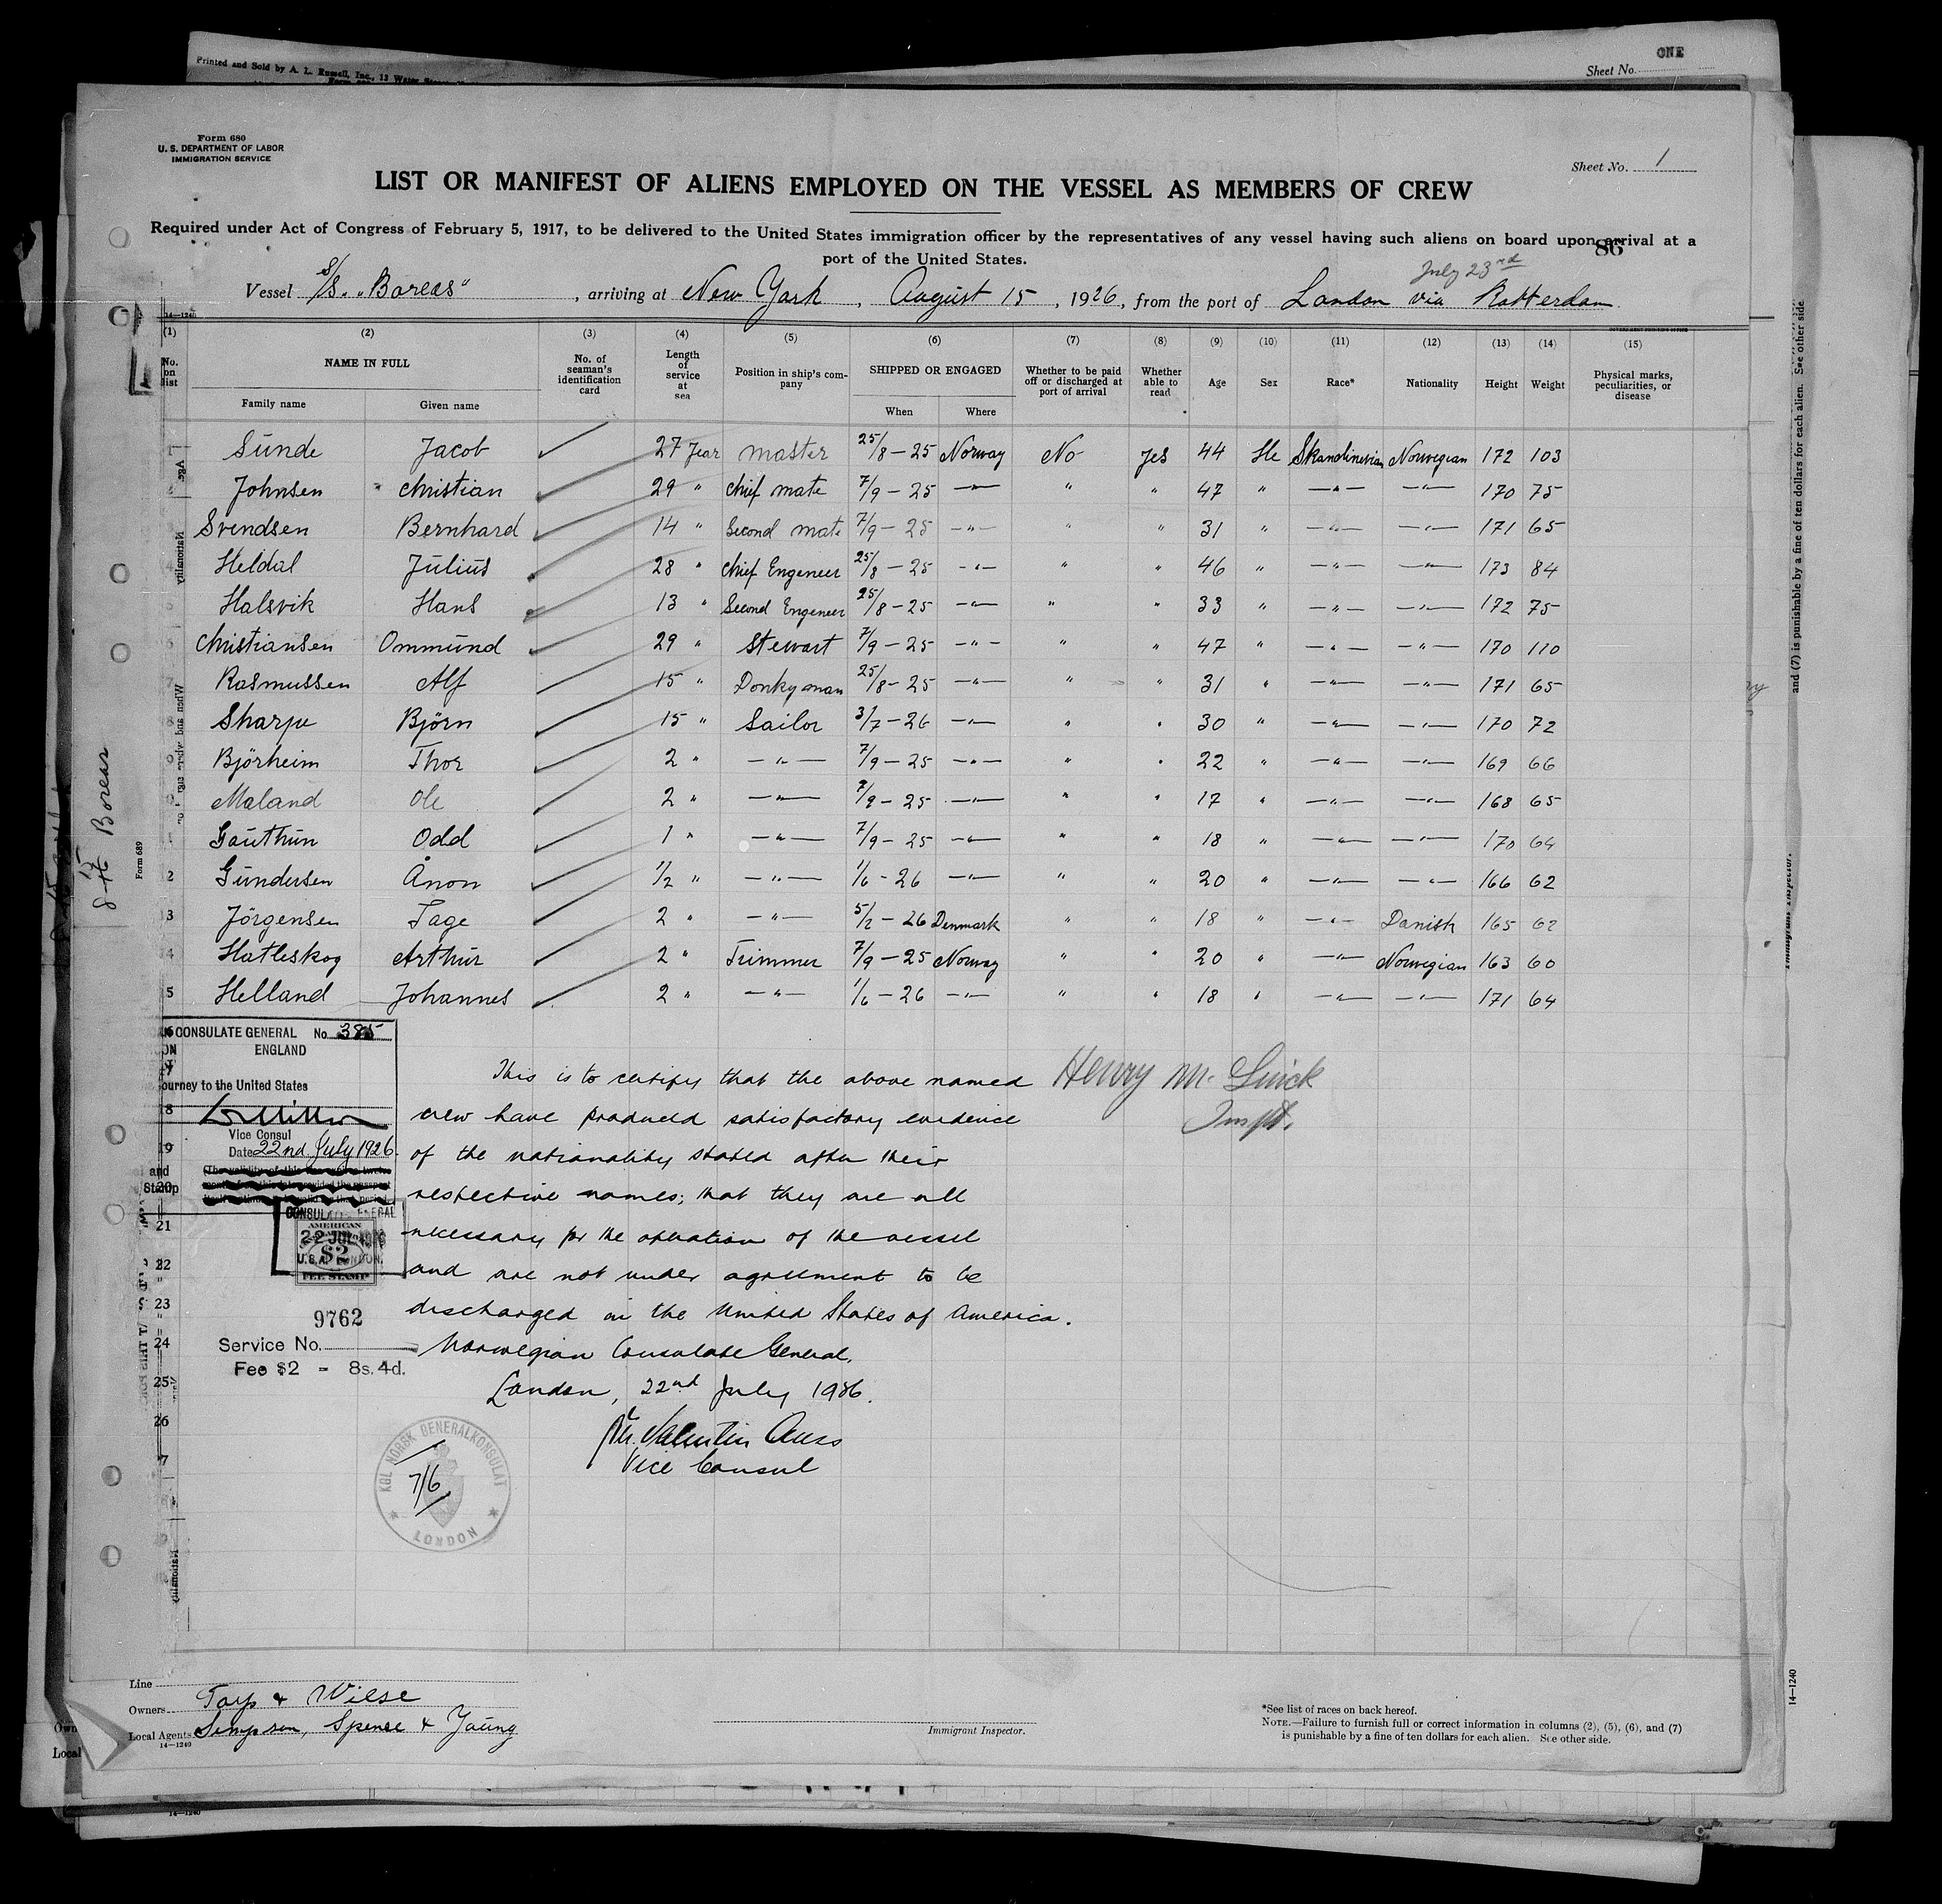 Printed and Sold by A. L. Russell, Inc., 13 Water
ONE
Sheet No.
Form 680
U. S. DEPARTMENT OF LABOR
IMMIGRATION SERVICE
Sheet No. 1
LIST OR MANIFEST OF ALIENS EMPLOYED ON THE VESSEL AS MEMBERS OF CREW
Required under Act of Congress of February 5, 1917, to be delivered to the United States immigration officer by the representatives of any vessel having such aliens on board upon arrival at a
port of the United States.
86
July 23rd
Vessel S/S. „Boreas“, arriving at New York, August 15, 1926, from the port of London via Rotterdam
14—1240
(1) (2) (3) (4) (5) (6) (7) (8) (9) (10) (11) (12) (13) (14) (15)
No. on list
NAME IN FULL
Family name
Given name
No. of seaman's identification card
Length of service at sea
Position in ship's company
SHIPPED OR ENGAGED
When
Where
Whether to be paid off or discharged at port of arrival
Whether able to read
Age
Sex
Race*
Nationality
Height
Weight
Physical marks, peculiarities, or disease
Sunde Jacob 27 Year master 25/8 – 25 Norway No yes 44 He Skandinevian Norwegian 172 103
Johnsen Christian 29 " chief mate 7/9 – 25 —"— " " 47 " —"— —"— 170 75
Svendsen Bernhard 14 " Second mate 7/9 – 25 —"— " " 31 " —"— —"— 171 65
Heldal Julius 28 " chief Engeneer 25/8 – 25 —"— " " 46 " —"— —"— 173 84
Halsvik Hans 13 " Second Engeneer 25/8 – 25 —"— " " 33 " —"— —"— 172 75
Christiansen Ommund 29 " Stewart 7/9 – 25 —"— " " 47 " —"— —"— 170 110
Rasmussen Alf 15 " Donkyman 25/8 – 25 —"— " " 31 " —"— —"— 171 65
Sharpe Björn 15 " Sailor 3/7 – 26 —"— " " 30 " —"— —"— 170 72
Björheim Thor 2 " —"— 7/9 – 25 —"— " " 22 " —"— —"— 169 66
Maland Ole 2 " —"— 7/9 – 25 —"— " " 17 " —"— —"— 168 65
Gauthun Odd 1 " —"— 7/9 – 25 —"— " " 18 " —"— —"— 170 64
Gundersen Ånon 1/2 " —"— 1/6 – 26 —"— " " 20 " —"— —"— 166 62
Jörgensen Tage 2 " —"— 5/2 – 26 Denmark " " 18 " —"— Danish 165 62
Hatleskog Arthur 2 " Trimmer 7/9 – 25 Norway " " 20 " —"— Norwegian 163 60
Helland Johannes 2 " —"— 1/6 – 26 —"— " " 18 " —"— —"— 171 64
CONSULATE GENERAL No. 385
ENGLAND
ourney to the United States
Vice Consul
Date 22nd July 1926.
and
Stamp
CONSULATE GENERAL
AMERICAN
22 JUL 1926
$2
U.S.A. LONDON.
FEE STAMP
9762
Service No.
Fee $2 - 8s. 4d.
This is to certify that the above named
crew have produced satisfactory evidence
of the nationality stated after their
respective names; that they are all
necessary for the operation of the vessel
and are not under agreement to be
discharged in the United States of America.
Norwegian Consulate General,
London, 22nd July 1926.
Vice Consul
Henry M.
Inspt.
KGL NORSK GENERALKONSULAT
LONDON
7/6
19
21
22
23
24
25
26
Boreas
Form 689
Line
Owners Torp & Wiese
Local Agents Simpson, Spense & Young
14—1240
Immigrant Inspector.
*See list of races on back hereof.
NOTE.—Failure to furnish full or correct information in columns (2), (5), (6), and (7)
is punishable by a fine of ten dollars for each alien. See other side.
and (7) is punishable by a fine of ten dollars for each alien. See other side
Immigrant Inspector.
14—1240
14—1240